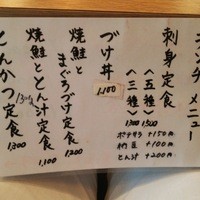 ランチメニュー
刺身定食
〈五種〉1500
〈三種〉1300
ポテサラ +150円
納豆 +100円
とん汁 +200円
づけ丼 1,100
焼鮭とまぐろづけ定食 1,200
焼鮭ととん汁定食 1,100
とんかつ定食 1300